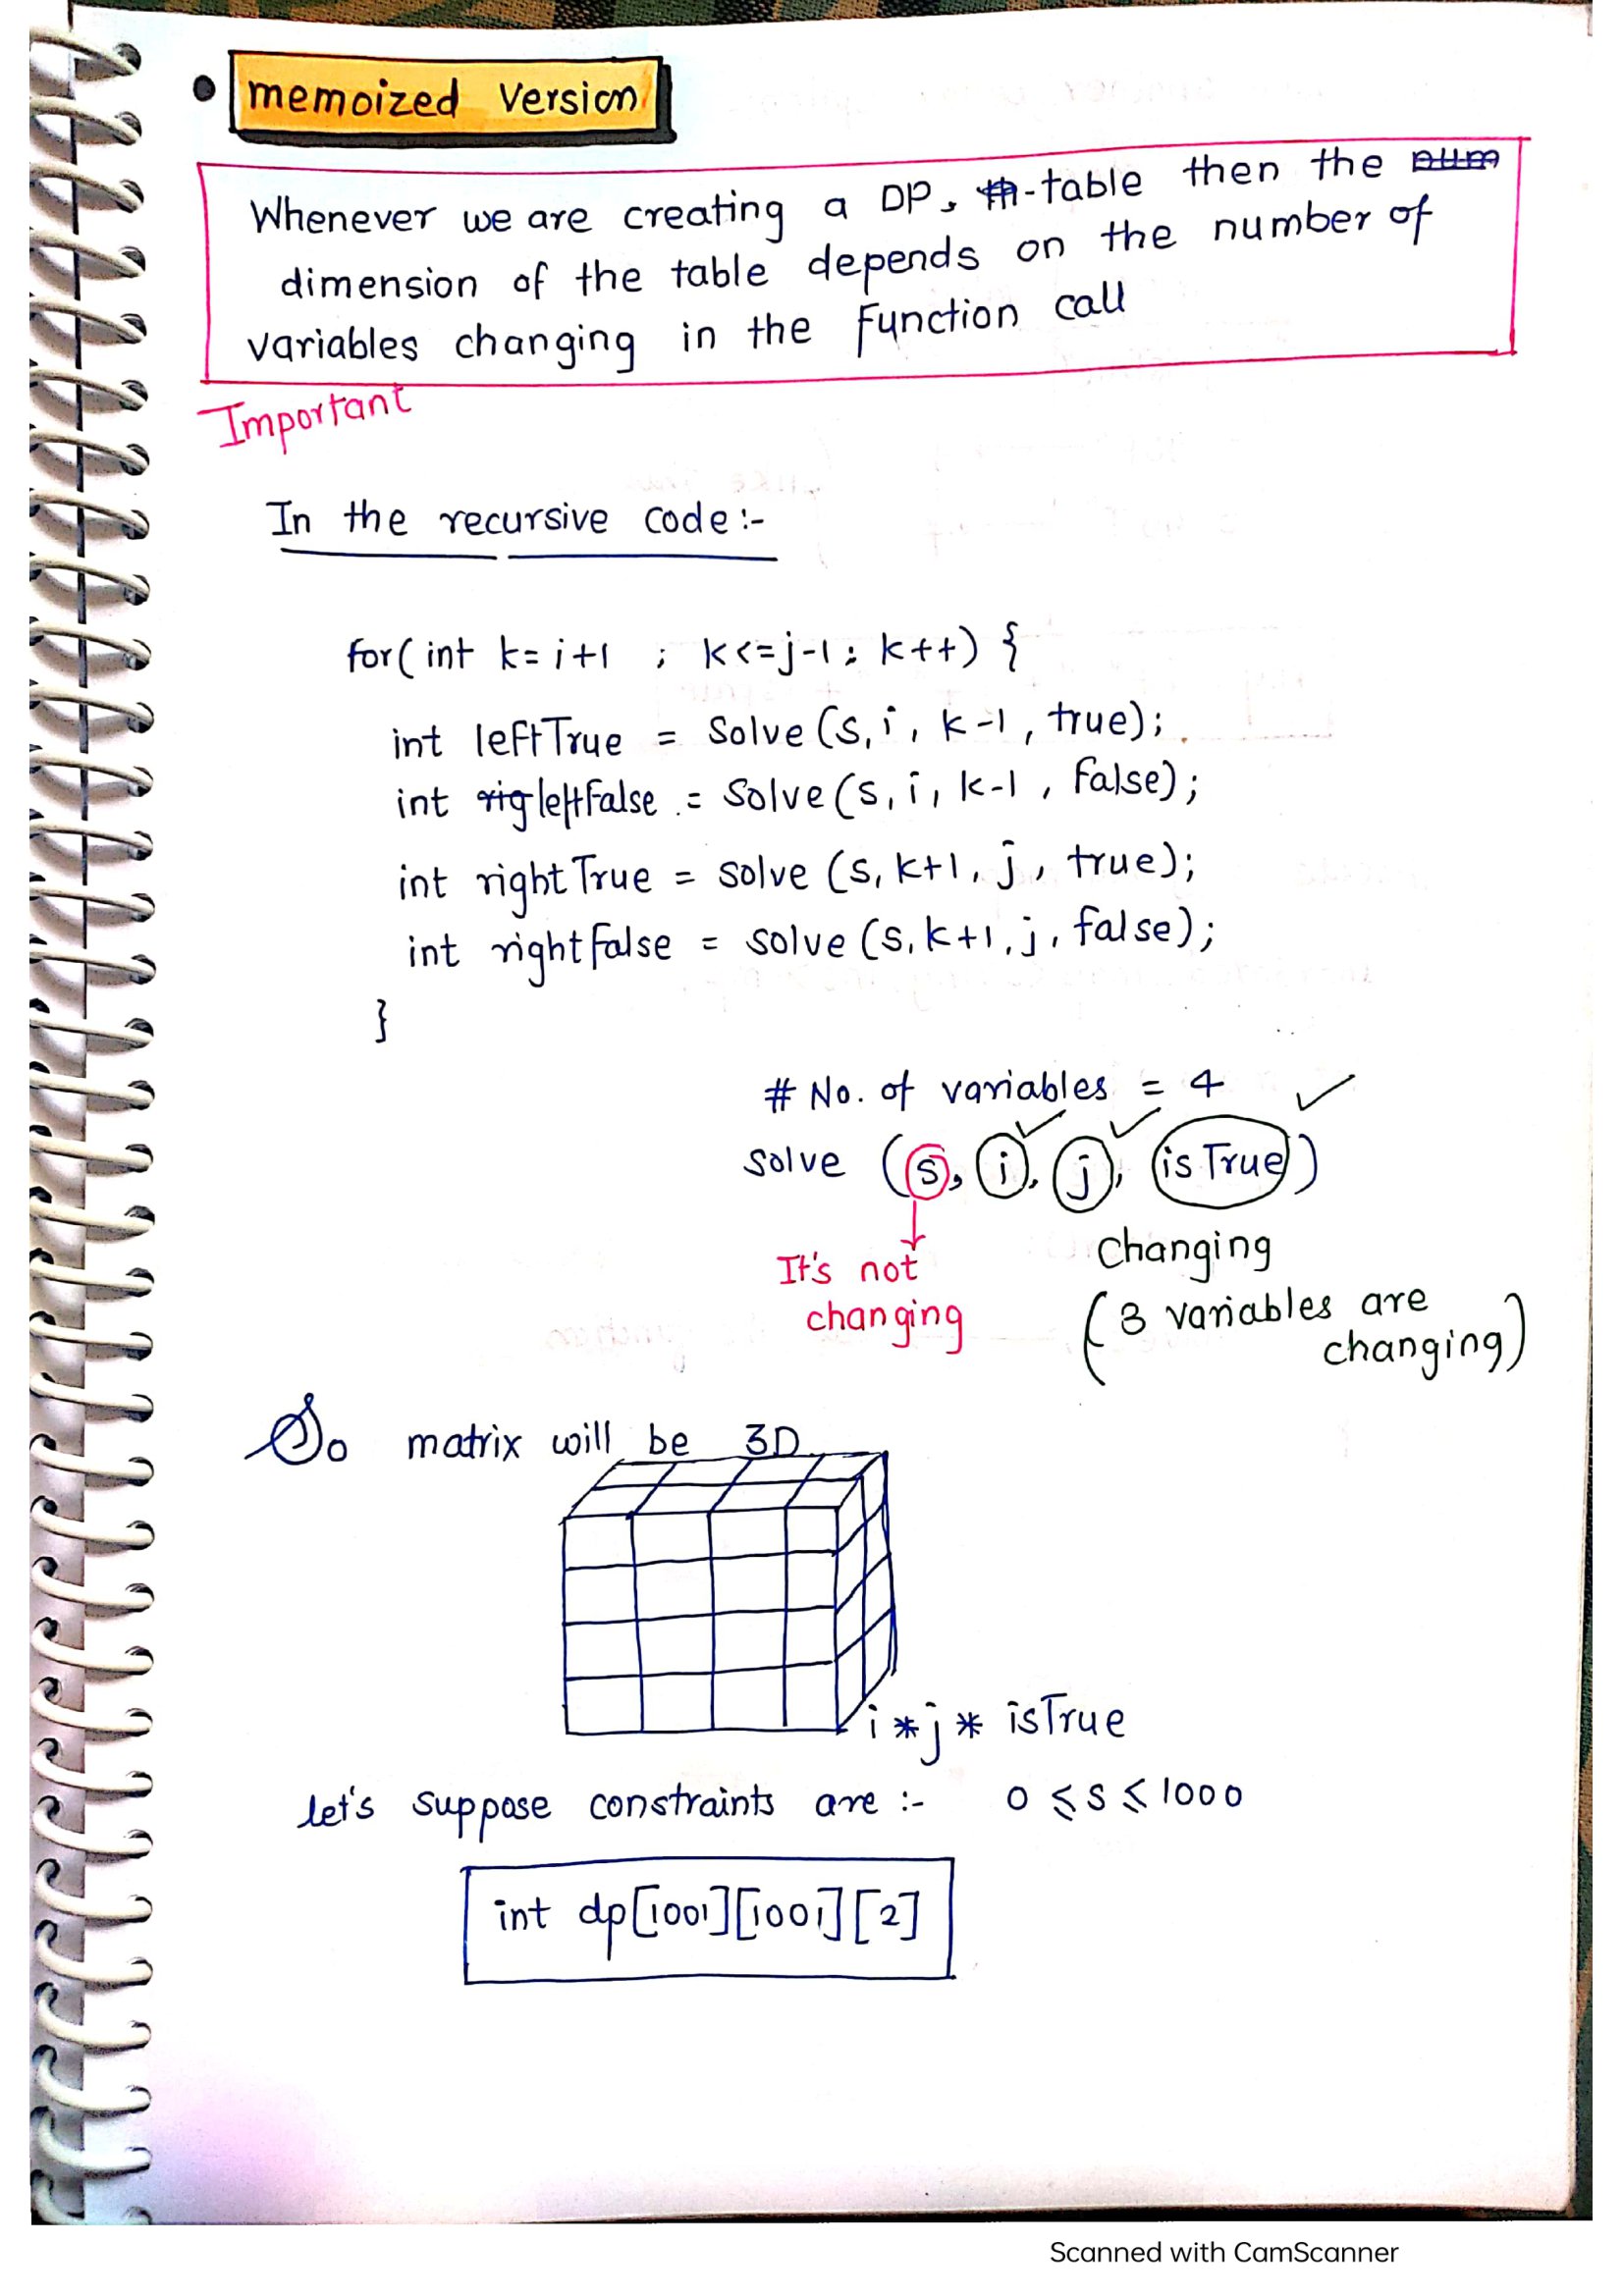 • memoized Version
Whenever we are creating a DP, -table then the
dimension of the table depends on the number of
variables changing in the function call
Important
In the recursive code :-
for( int k= i+1 ; k<=j-1 ; k++) {
int leftTrue = Solve (s, i, k-1, true);
int leftfalse = Solve (s, i, k-1, false);
int rightTrue = solve (s, k+1, j, true);
int rightfalse = solve (s, k+1, j, false);
}
# No. of variables = 4
solve (s, i, j, isTrue)
It's not
changing
changing
(3 variables are
changing)
So matrix will be 3D
i * j * isTrue
let's suppose constraints are :- 0 ≤ s ≤ 1000
int dp[1001][1001][2]
Scanned with CamScanner